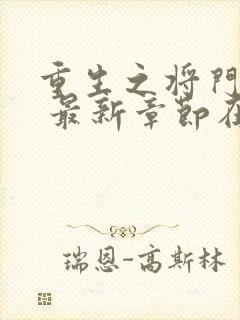 重生之将门
最新章节在
瑞恩-高斯林